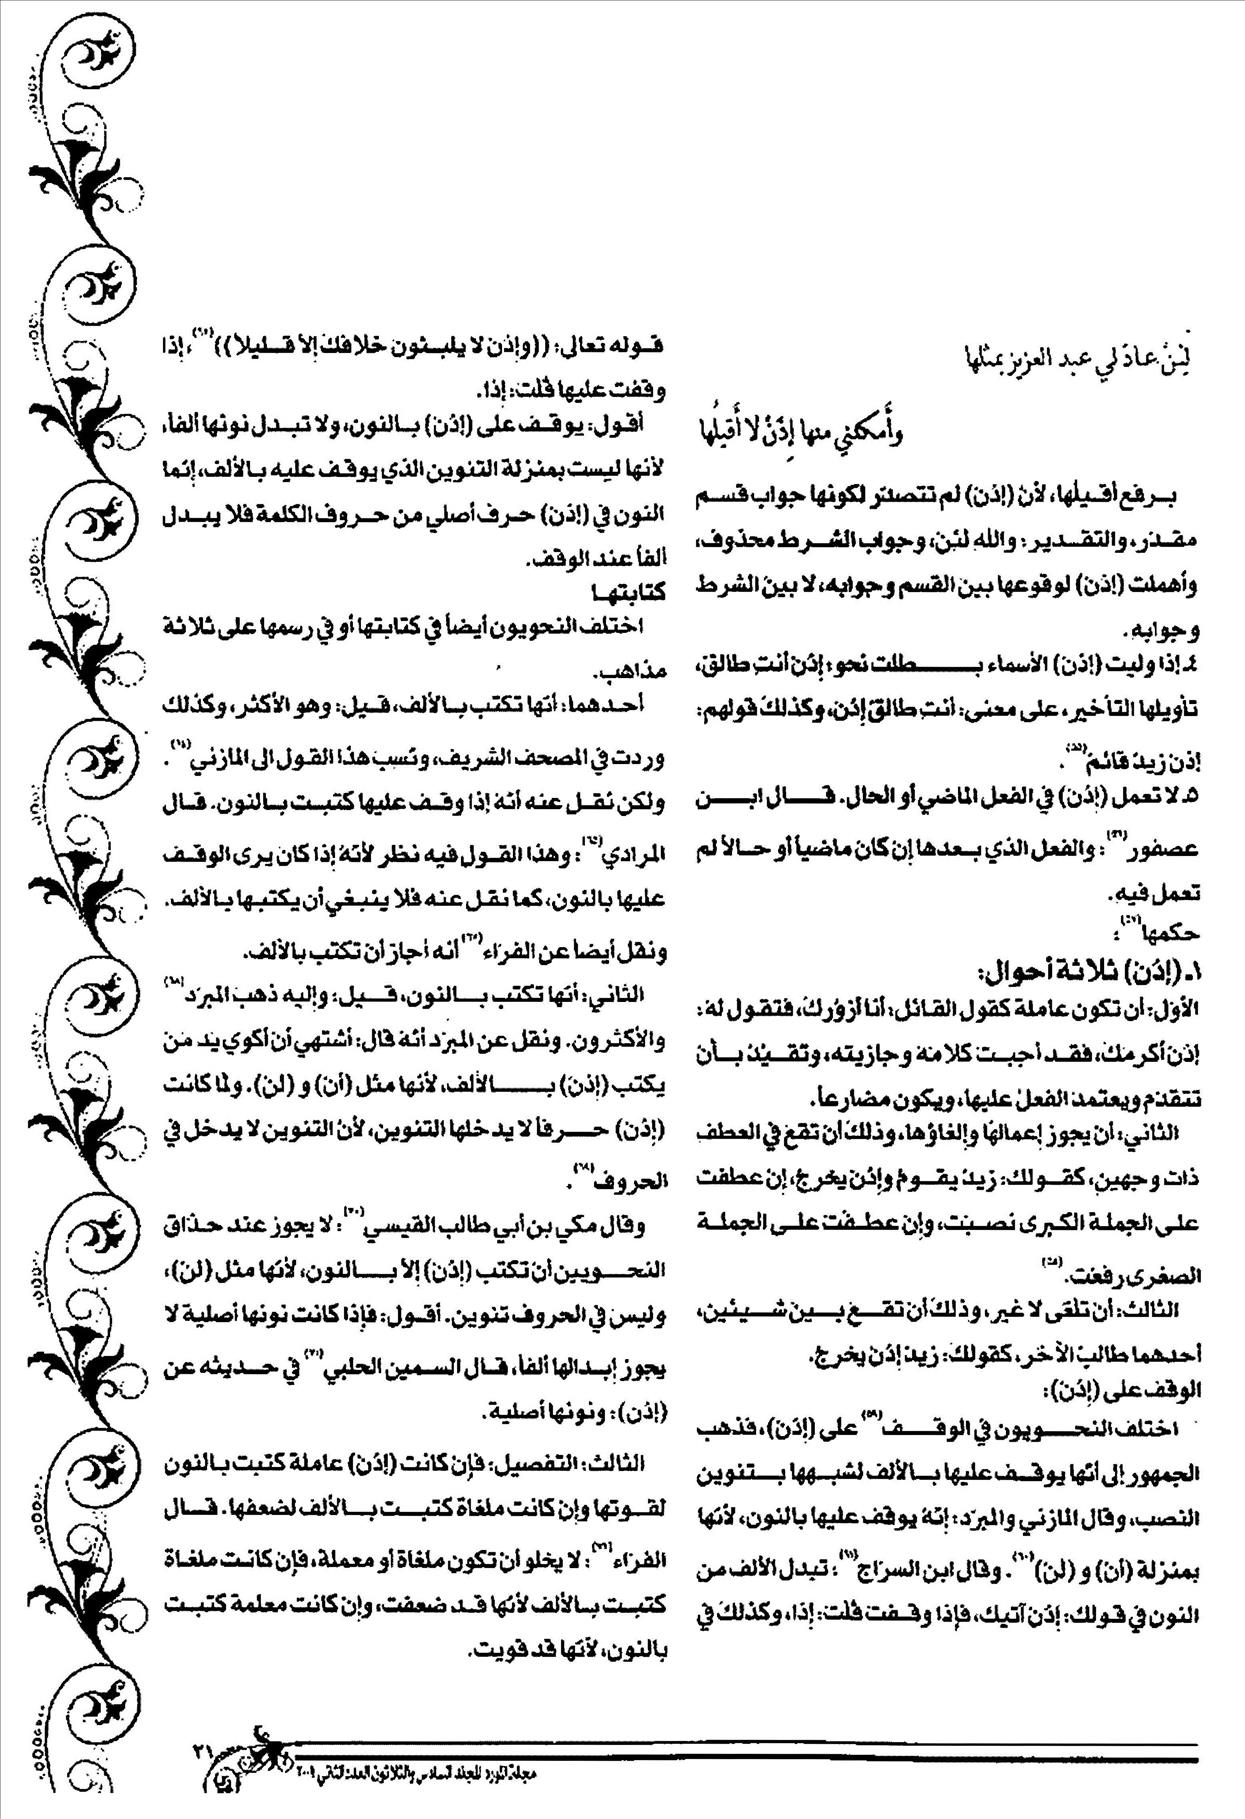 لئنْ عادَ لي عبد العزيز بمثلها
وأمكنني منها إذَنْ لا أقيلُها
برفع أقيلُها، لأنّ (إذن) لم تتصدّر لكونها جواب قسم
مقدّر، والتقدير: والله لئن، وجواب الشرط محذوف،
وأهملت (إذن) لوقوعها بين القسم وجوابه، لا بين الشرط
وجوابه.
٤ـ إذا وليت (إذن) الأسماء بطلت نحو: إذن أنتِ طالق،
تأويلها التأخير، على معنى: أنتِ طالقٌ إذن، وكذلك قولهم:
إذن زيدٌ قائمٌ(٥٥).
٥ـ لا تعمل (إذن) في الفعل الماضي أو الحال. قال ابن
عصفور(٥٦): والفعل الذي بعدها إن كان ماضياً أو حالاً لم
تعمل فيه.
حكمها(٥٧):
١ـ (إذن) ثلاثة أحوال:
الأوّل: أن تكون عاملة كقول القائل: أنا أزورك، فتقول له:
إذن أكرمك، فقد أجبت كلامه وجازيته، وتقيّد بأن
تتقدّم ويعتمد الفعل عليها، ويكون مضارعاً.
الثاني: أن يجوز إعمالها وإلغاؤها، وذلك أن تقع في العطف
ذات وجهين، كقولك: زيد يقوم وإذن يخرج، إن عطفت
على الجملة الكبرى نصبت، وإن عطفت على الجملة
الصغرى رفعت.(٥٨)
الثالث: أن تلغى لا غير، وذلك أن تقع بين شيئين،
أحدهما طالبٌ الآخر، كقولك: زيد إذن يخرج.
الوقف على (إذن):
اختلف النحويون في الوقف(٥٩) على (إذن)، فذهب
الجمهور إلى أنّها يوقف عليها بالألف لشبهها بتنوين
النصب، وقال المازني والمبرّد: إنّه يوقف عليها بالنون، لأنّها
بمنزلة (أن) و (لن)(٦٠). وقال ابن السرّاج(٦١): تبدل الألف من
النون في قولك: إذن آتيك، فإذا وقفت قلت: إذا، وكذلك في
قوله تعالى: ((وإذن لا يلبثون خلافك إلاّ قليلاً))(٦٢)، إذا
وقفت عليها قلت: إذا.
أقول: يوقف على (إذن) بالنون، ولا تبدل نونها ألفاً،
لأنها ليست بمنزلة التنوين الذي يوقف عليه بالألف، إنّما
النون في (إذن) حرف أصلي من حروف الكلمة فلا يبدل
ألفاً عند الوقف.
كتابتها
اختلف النحويون أيضاً في كتابتها أو في رسمها على ثلاثة
مذاهب.
أحدهما: أنّها تكتب بالألف، قيل: وهو الأكثر، وكذلك
وردت في المصحف الشريف، ونُسب هذا القول الى المازني(٦٤).
ولكن نُقل عنه أنّه إذا وقف عليها كتبت بالنون. قال
المرادي(٦٥): وهذا القول فيه نظر لأنّه إذا كان يرى الوقف
عليها بالنون، كما نقل عنه فلا ينبغي أن يكتبها بالألف.
ونقل أيضاً عن الفرّاء أنه أجاز أن تكتب بالألف.
الثاني: أنّها تكتب بالنون، قيل: وإليه ذهب المبرّد(٦٨)
والأكثرون. ونقل عن المبرّد أنّه قال: أشتهي أن أكوي يد من
يكتب (إذن) بالألف، لأنها مثل (أن) و (لن). ولما كانت
(إذن) حرفاً لا يدخلها التنوين، لأنّ التنوين لا يدخل في
الحروف.
وقال مكي بن أبي طالب القيسي(٧٠): لا يجوز عند حذاق
النحويين أن تكتب (إذن) إلاّ بالنون، لأنّها مثل (لن)،
وليس في الحروف تنوين. أقول: فإذا كانت نونها أصلية لا
يجوز إبدالها ألفاً، قال السمين الحلبي(٧١) في حديثه عن
(إذن): ونونها أصلية.
الثالث: التفصيل: فإن كانت (إذن) عاملة كتبت بالنون
لقوتها وإن كانت ملغاة كتبت بالألف لضعفها. قال
الفرّاء: لا يخلو أن تكون ملغاة أو معملة، فإن كانت ملغاة
كتبت بالألف لأنها قد ضعفت، وإن كانت معلمة كتبت
بالنون، لأنّها قد قويت.
٢١
مجلة المورد المجلد السادس والثلاثون العدد الثاني ٢٠٠٩